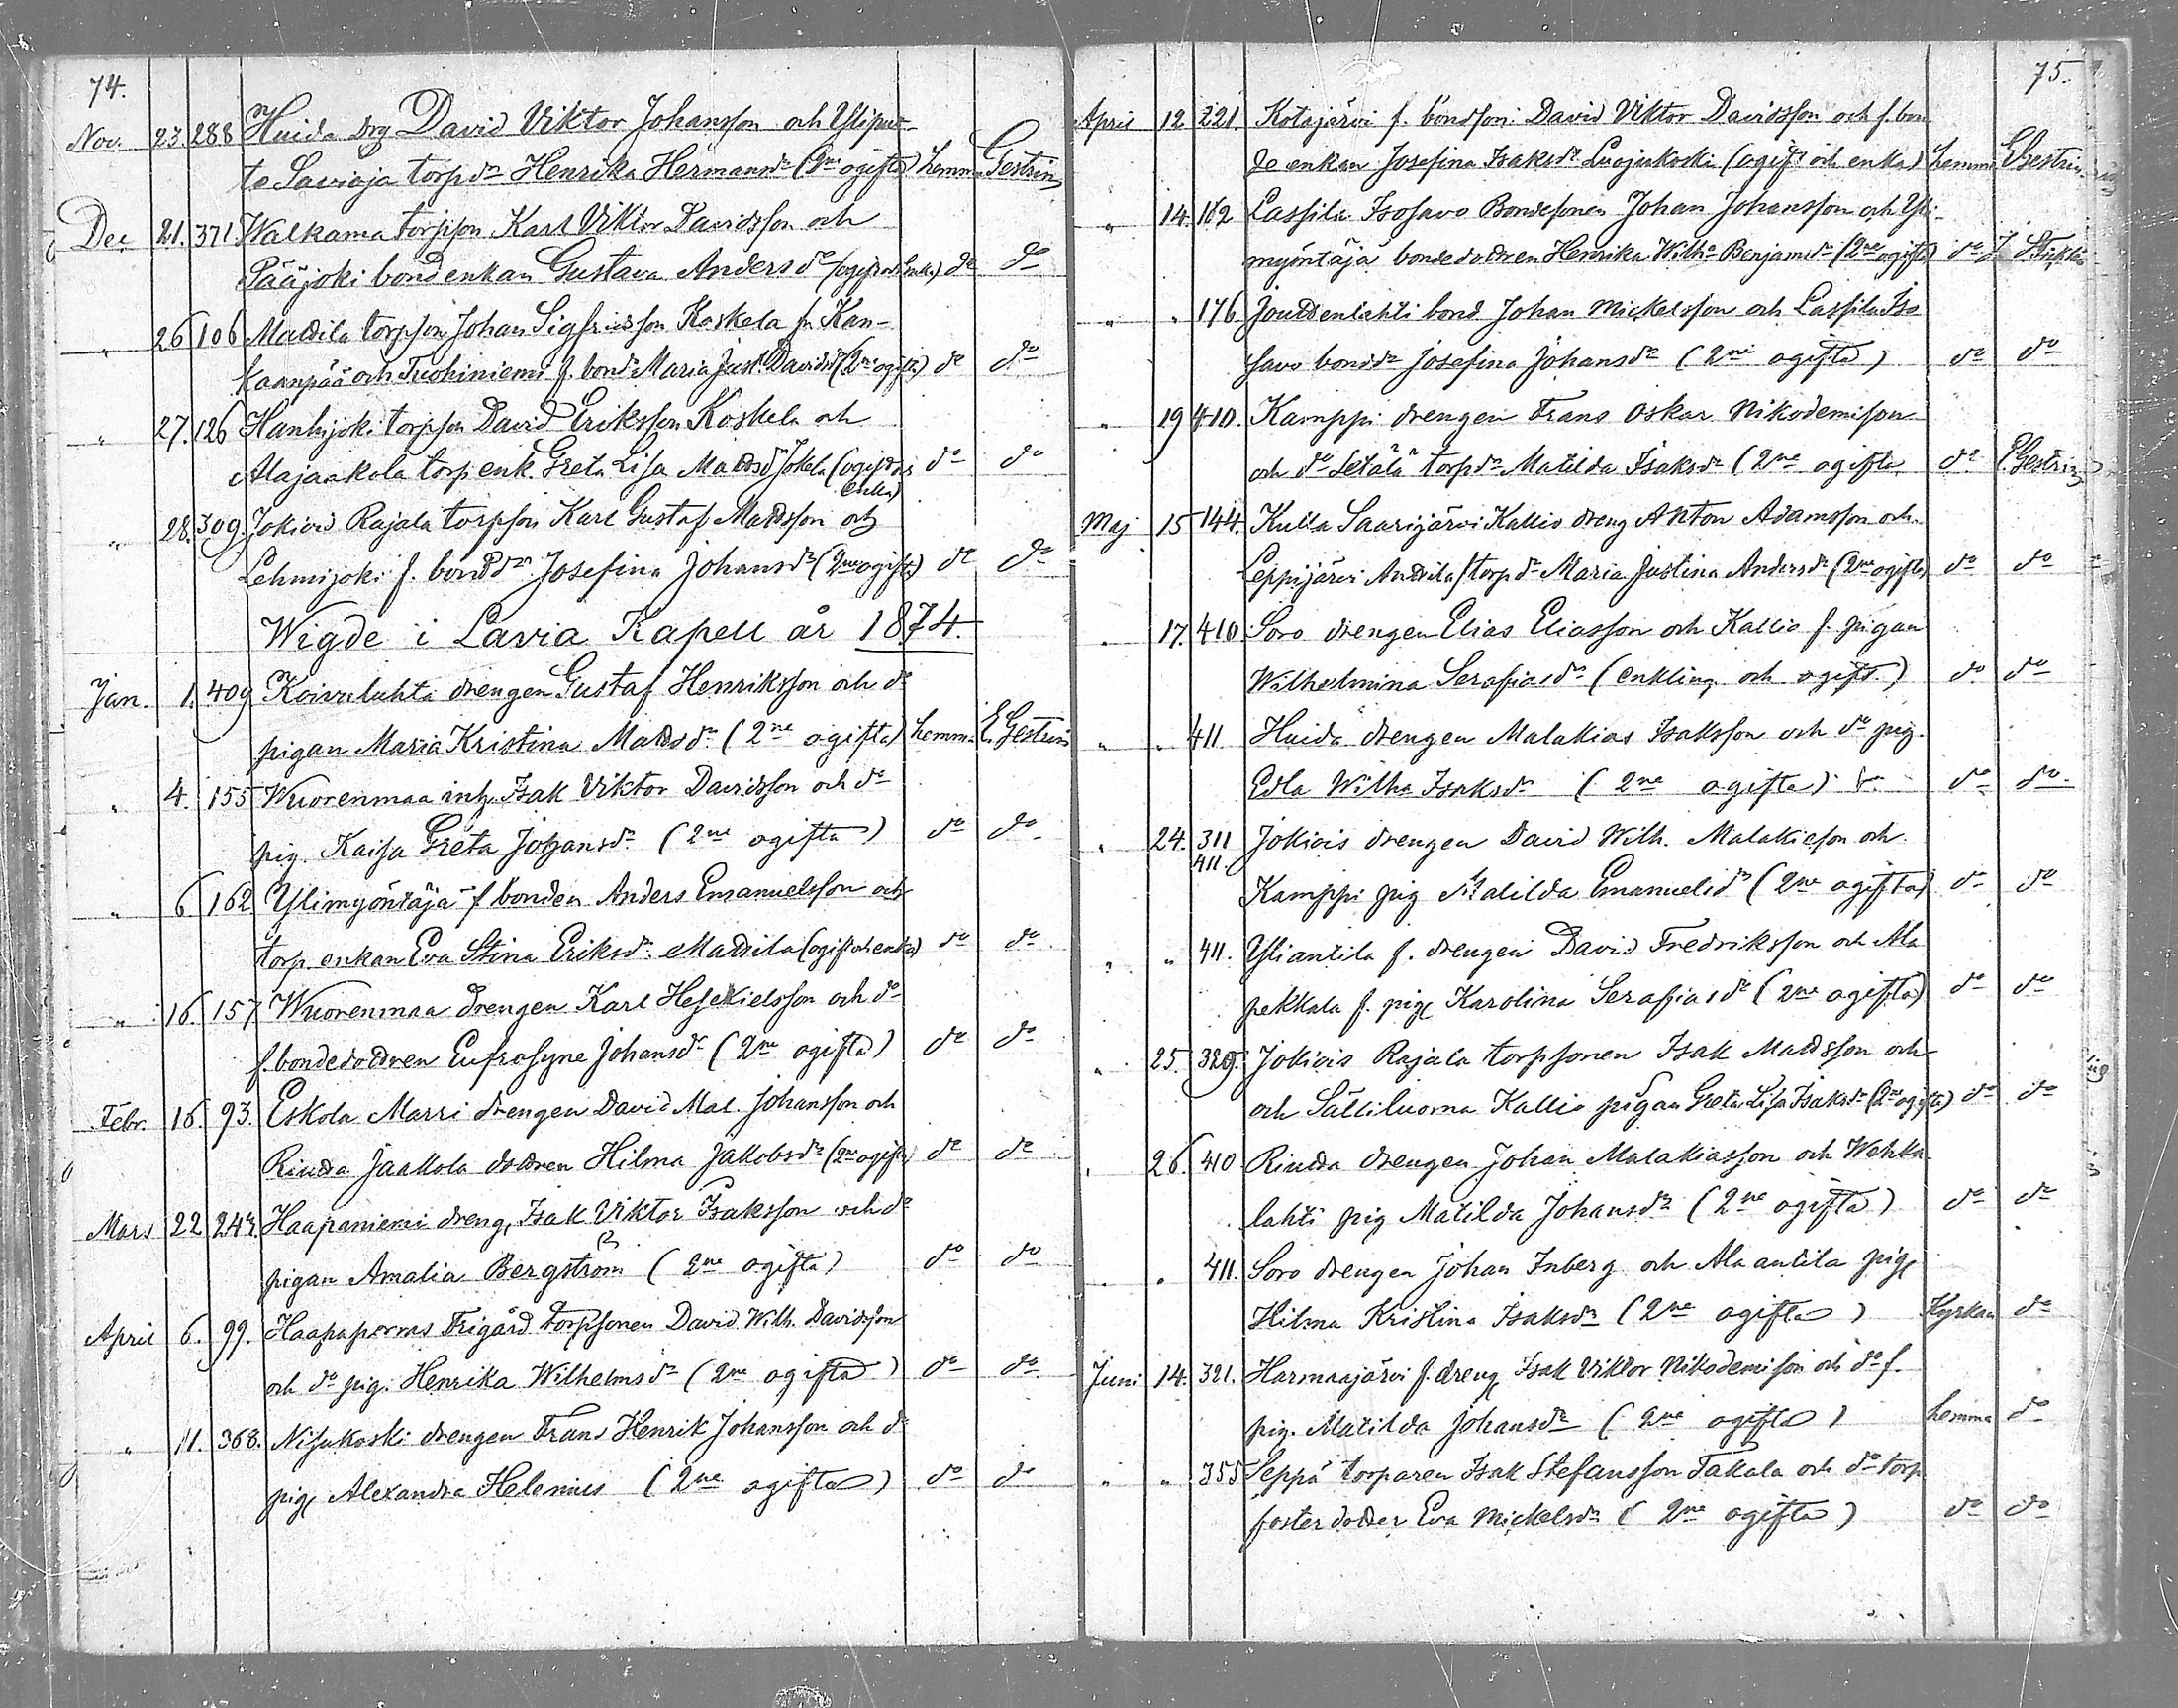 74.
Nov. 23. 288 Huida drg David Viktor Johansson och Ylipur-
to Savioja torpdr Henrika Hermansdr (2ne ogifta) hemma Gestrin
Dec. 21. 371. Walkama torpson Karl Viktor Davidsson och
Pääjoki bondenkan Gustava Andersdr (ogift och enka) do do
" 26 106 Mattila torpson Johan Sigfridsson Koskela fr Kan-
kaanpää och Tuohiniemi f. bondr Maria Just. Davidsdr (2ne ogifta) do do
" 27. 126 Hanhijoki torpson David Eriksson Koskela och
Alajaakola torpenk. Greta Lisa Mattsdr Jokela (ogift och enka) do do
" 28. 309. Jokiois Rajala torpson Karl Gustaf Mattsson och
Lehmijoki f. bonddr Josefina Johansdr (2ne ogifta) do do
Wigde i Lavia Kapell år 1874.
Jan. 1. 409 Koivuluhta drengen Gustaf Henriksson och do
pigan Maria Kristina Mattsdr (2ne ogifta) hemma E. Gestrin
" 4. 155 Wuorenmaa inh. Isak Viktor Davidsson och do
pig. Kaisa Greta Johansdr (2ne ogifta) do do
" 6. 162 Ylimyöntäjä f bonden Anders Emanuelsson och
torp. enkan Eva Stina Eriksdr Mattila (ogift och enka) do do
" 16. 157 Wuorenmaa drengen Karl Hesekielsson och do
f. bondedottren Eufrosyne Johansdr (2ne ogifta) do do
Febr. 16. 93. Eskola Marri drengen David Mat. Johansson och
Riutta Jaakola dottren Hilma Jakobsdr (2ne ogifta) do do
Mars 22 244. Haapaniemi dreng. Isak Viktor Isaksson och do
pigan Amalia Bergström (2ne ogifta) do do
April 6. 99. Haapaporras Frigård torpsonen David Wilh. Davidsson
och do pig. Henrika Wilhelmsdr (2ne ogifta) do do
" 11. 368. Nisukoski drengen Frans Henrik Johansson och do
pig. Alexandra Helenius (2ne ogifta) do do
75.
April 12 221. Kotajärvi f. bondson David Viktor Davidsson och f. bon-
de enkan Josefina Isaksdr Luojukoski (ogift och enka) hemma E Gestrin
" 14. 162 Lassila Isosavo Bondesonen Johan Johansson och Yli-
myöntäjä bondedottren Henrika Wilha Benjamsdr (2ne ogifta) do
" " 176. Jouttenlahti bond Johan Mickelsson och Lassila Iso
savo bonddr Josefina Johansdr (2ne ogifta) do do
" 19 410. Kamppi drengen Frans Oskar Nikodemison
och do Setälä torpdr Matilda Isaksdr (2ne ogifta do E. Gestrin
Maj 15 144. Kulla Saarijärvi Kallio dreng Anton Adamsson och
Leppijärvi Anttila torpdr Maria Justina Andersdr (2ne ogifta) do do
" 17. 410 Soro drengen Elias Eliasson och Kallio f. pigan
Wilhelmina Serafiasdr (enkling och ogift.) do do
" " 411 Huida drengen Malakias Isaksson och do pig.
Edla Wilha Isaksdr (2ne ogifta) do do
" 24. 311 Jokiois drengen David Wilh. Malakieson och
411. Kamppi pig Matilda Emanuelsdr (2ne ogifta) do do
" " 411. Yliantila f. drengen David Fredriksson och Ala
pekkala f. pig. Karolina Serafiasdr (2ne ogifta) do do
" 25. 329. Jokiois Rajala torpsonen Isak Mattsson och
och Sättiluoma Kallio pigan Greta Lisa Isaksdr (2ne ogifta) do do
" 26. 410 Riutta drengen Johan Malakiasson och Wehka-
lahti pig Matilda Johansdr (2ne ogifta) do do
" " 411. Soro drengen Johan Inberg och Ala antila pig.
Hilma Kristina Isaksdr (2ne ogifta) Kyrkan do
Juni 14. 321. Harmaajärvi f. dreng Isak Viktor Nikodemison och do f.
pig. Matilda Johansdr (2ne ogifta) hemma do
" " 355 Seppä torparen Isak Stefansson Takala och do torp
fosterdotter Eva Mickelsdr (2ne ogifta) do do